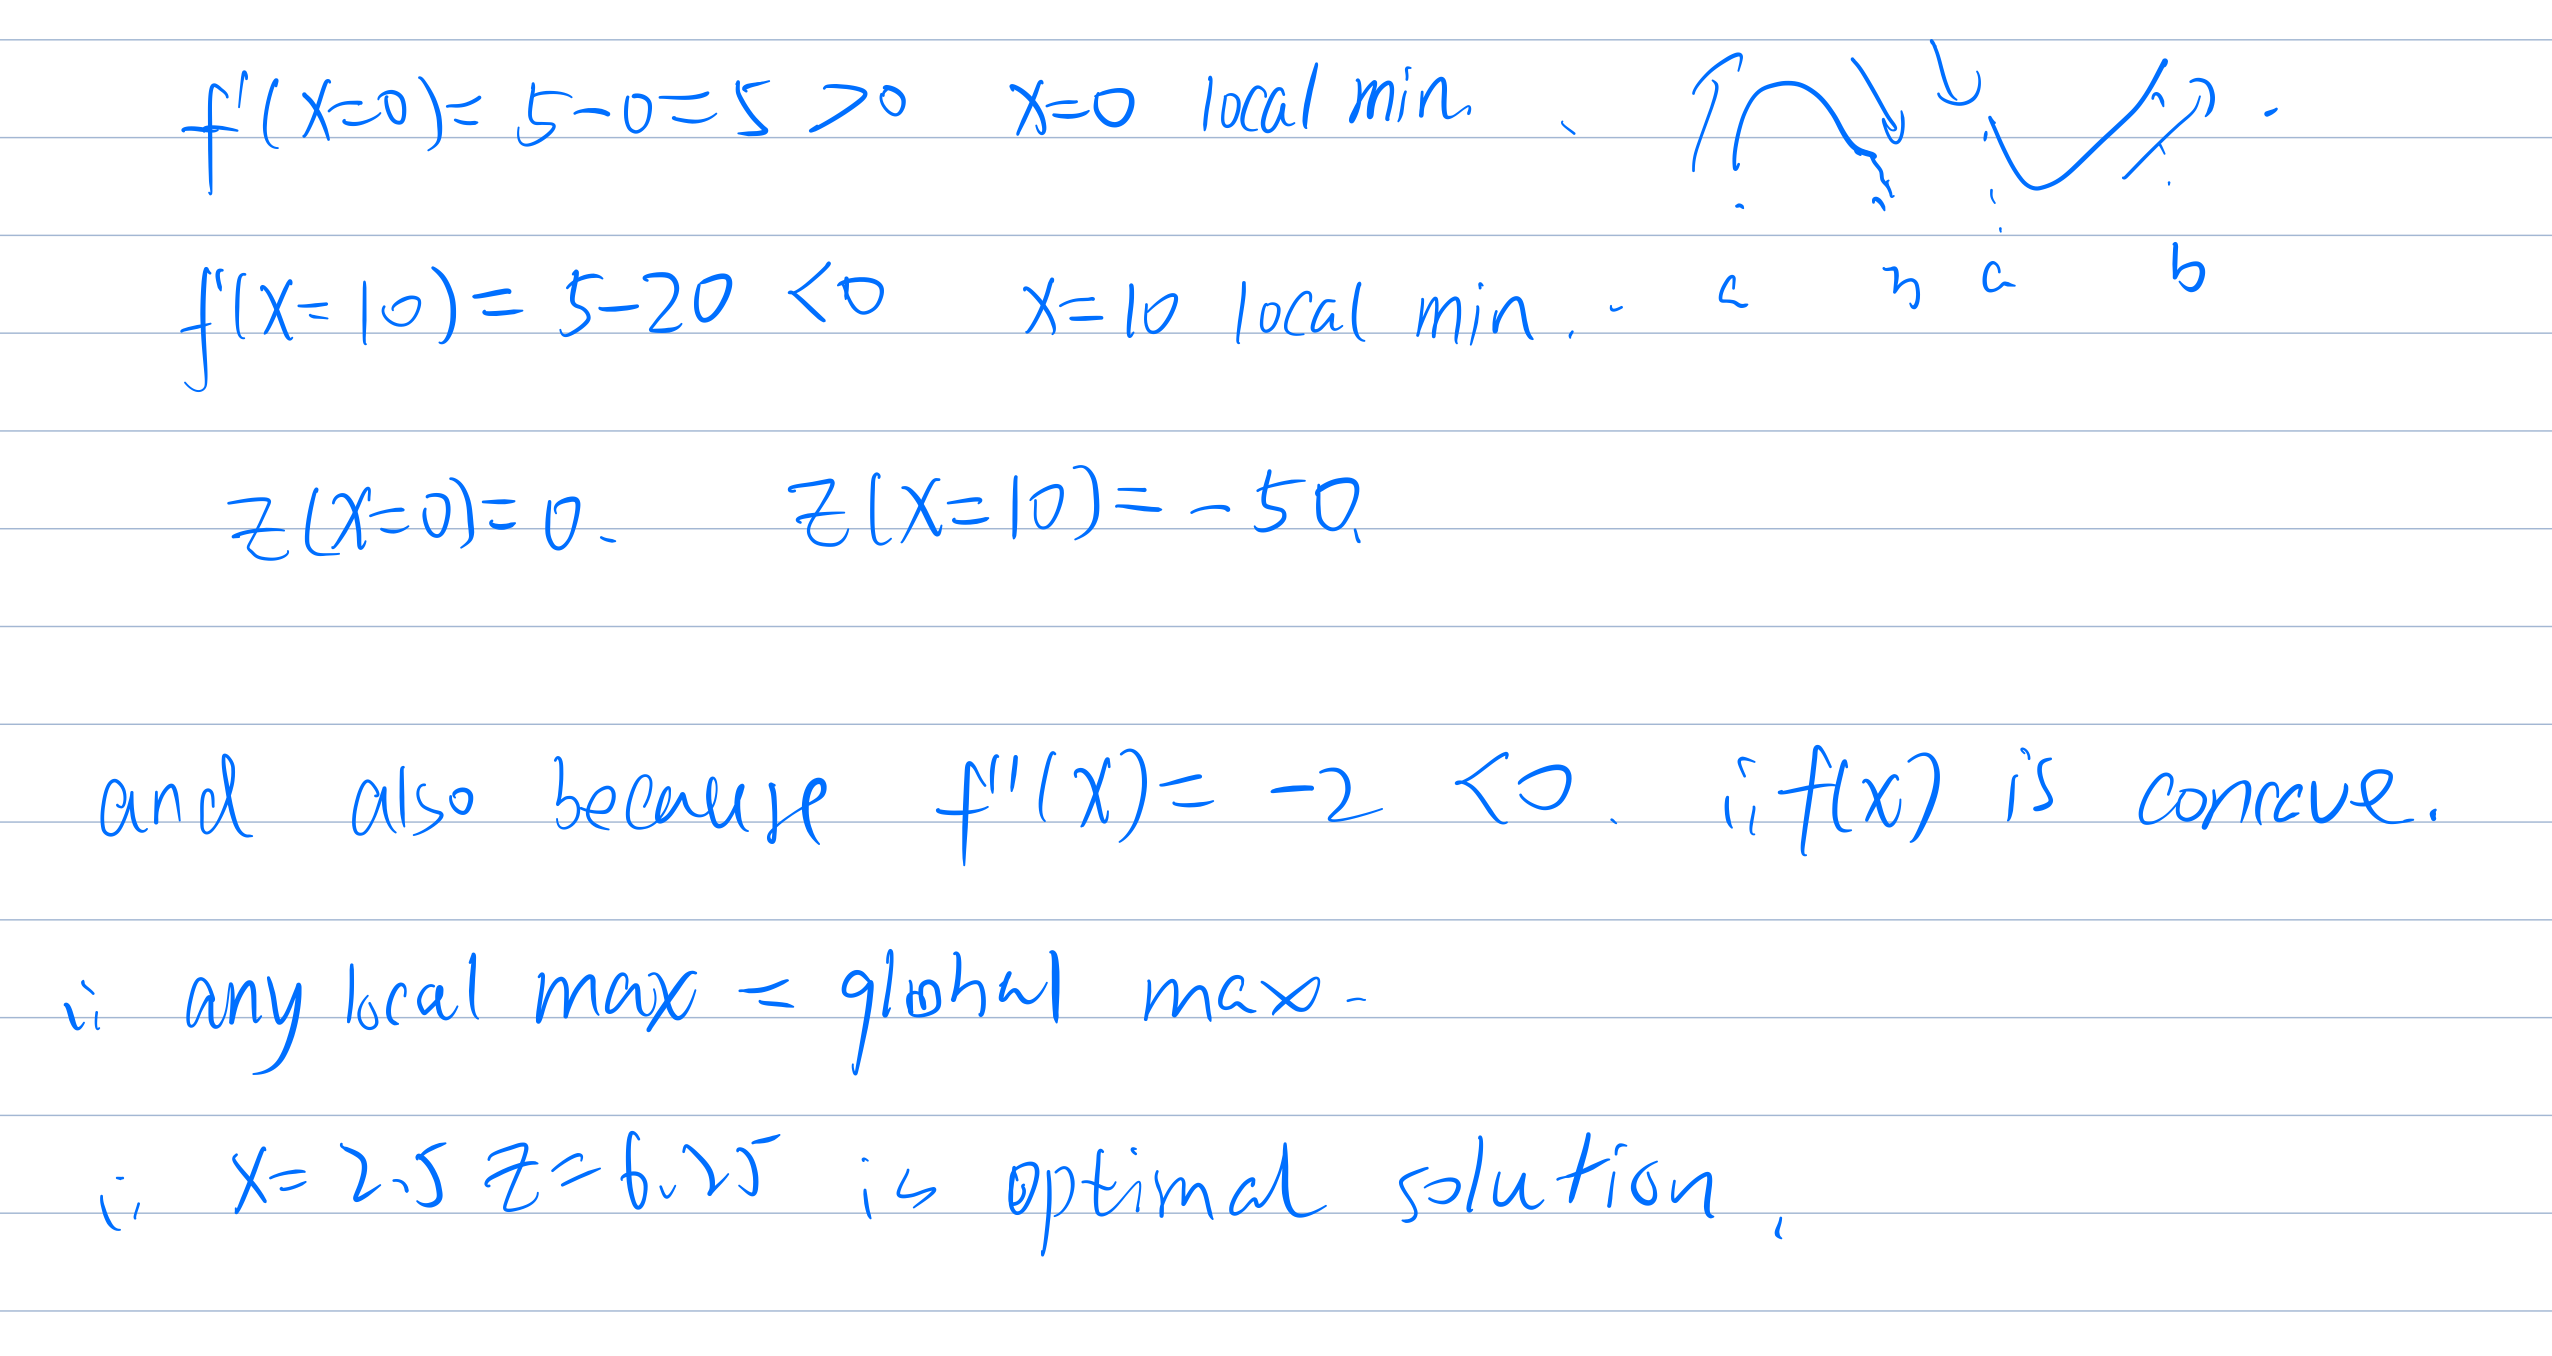 f'(x=0)= 5-0=5 >0 x=0 local min.
a b a b
f'(x=10)= 5-20 <0 x=10 local min.
z(x=0)=0. z(x=10)=-50.
and also because f''(x)= -2 <0. ∴ f(x) is concave.
∴ any local max = global max.
∴ x=2.5 z=6.25 is optimal solution.